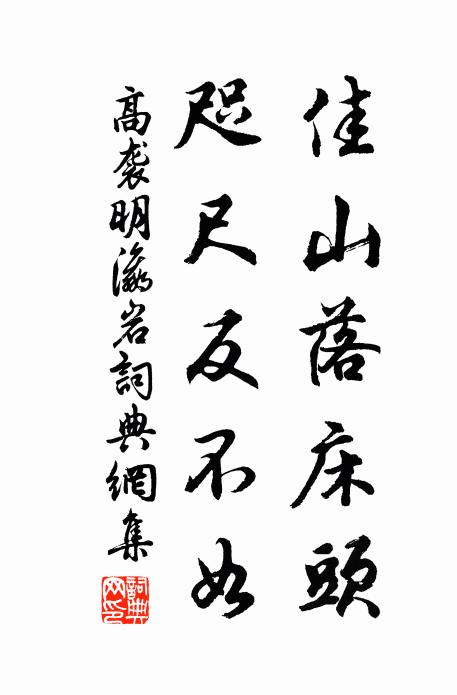 佳山落床頭
咫尺反不如
高袭明瀛岩詞典網集
詞典網印